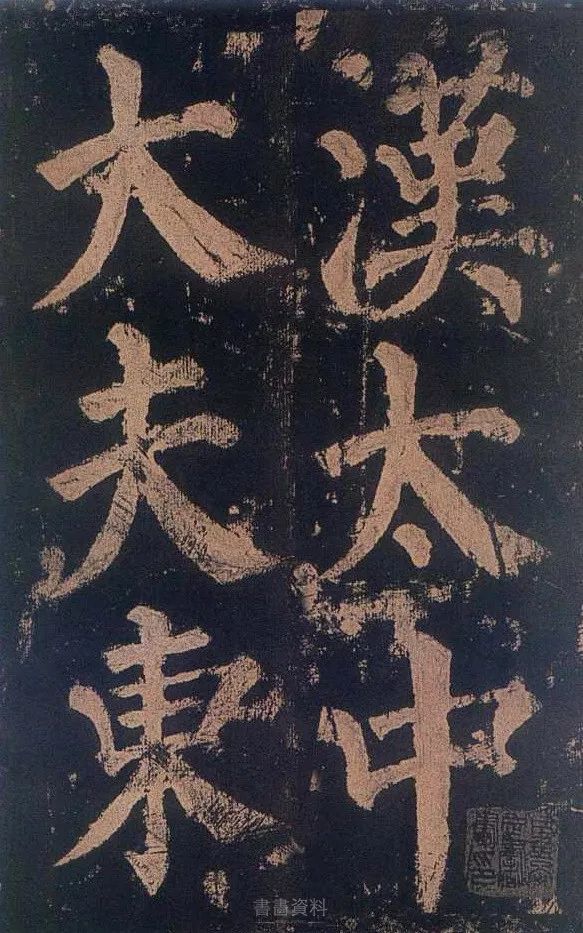 漢太中
大夫東
書畫資料